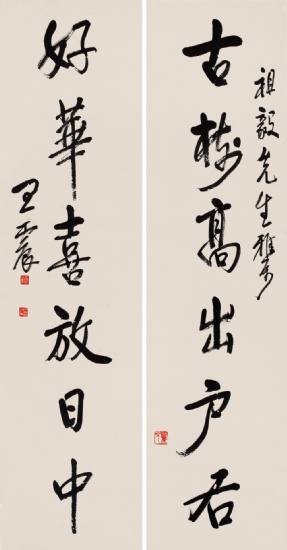 祖毅先生雅屬
古樹高出戶右
好華喜放日中
王震